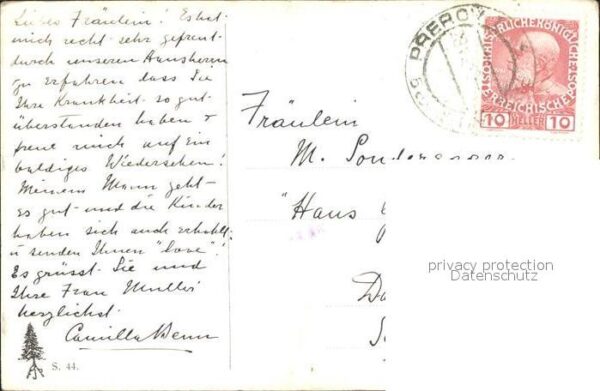 Liebes Fräulein! Es hat
mich recht sehr gefreut
durch unseren Hausherrn
zu erfahren dass Sie
Ihre Krankheit so gut
überstanden haben &
freue mich auf ein
baldiges Wiedersehen!
Meinem Mann geht
es gut und die Kinder
haben sich auch erholt
u senden Ihnen "love"!
Es grüsst Sie und
Ihre Frau Mutter
herzlichst
Camilla Benn
S. 44.
PREROV
10 HELLER 10
Fräulein
M.
"Haus
privacy protection
Datenschutz